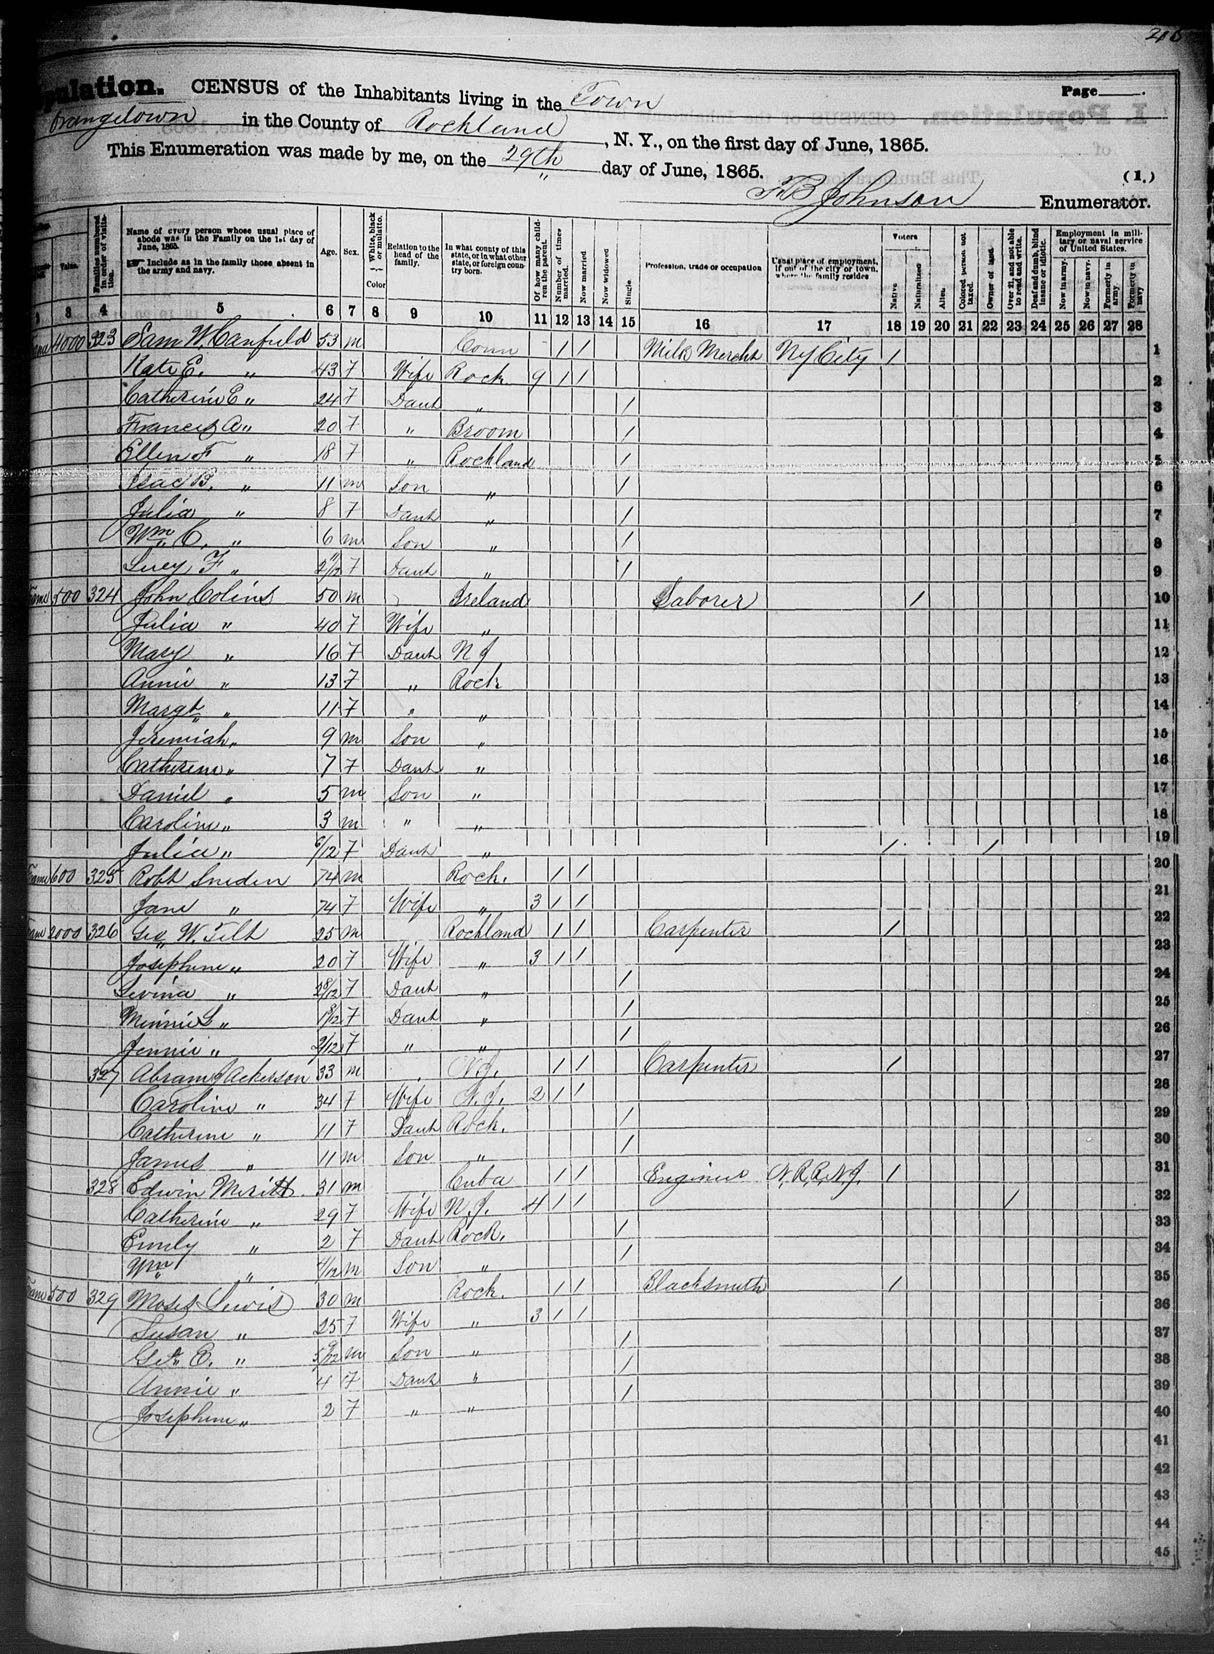 Population. CENSUS of the Inhabitants living in the Town
Orangetown in the County of Rockland, N. Y., on the first day of June, 1865.
This Enumeration was made by me, on the 29th day of June, 1865.
Page
(1.)
Johnson Enumerator.
Value. Families numbered in order of visitation. Name of every person whose usual place of abode was in the Family on the 1st day of June, 1865. Include as in the family those absent in the army and navy. Age. Sex. White, black or mulatto. Color Relation to the head of the family. In what county of this state, or in what other state, or foreign country born. Of how many children the parent. Number of times married. Now married Now widowed Single. Profession, trade or occupation Usual place of employment, if out of the city or town, where the family resides Voters Native Naturalized Alien Colored person not taxed. Owner of land. Over 21, and not able to read and write. Deaf and dumb, blind insane or idiotic. Employment in military or naval service of United States. Now in army. Now in navy. Formerly in army Formerly in navy
3 4 5 6 7 8 9 10 11 12 13 14 15 16 17 18 19 20 21 22 23 24 25 26 27 28
4000 323 Sam W. Canfield 53 m Conn 1 1 Milk Mercht NyCity 1 1
Kate E. " 43 F Wife Rock 9 1 1 2
Catherine E " 24 F Daut " 1 3
Francis A " 20 F " Broom 1 4
Ellen F " 18 F " Rockland 1 5
Isac B. " 11 m Son " 1 6
Julia " 8 F Daut " 1 7
Wm C. " 6 m Son " 1 8
Lucy F " F Daut " 1 9
Frame 500 324 John Colins 50 m Ireland Laborer 1 10
Julia " 40 F Wife " 11
Mary " 16 F Daut N J 12
Annie " 13 F " Rock 13
Margt " 11 F " " 14
Jeremiah " 9 m Son " 15
Catherine " 7 F Daut " 16
Daniel " 5 m Son " 17
Caroline " 3 m " " 18
Julia " 6/12 F Daut " 1 1 19
Frame 600 325 Robt Sneden 74 m Rock. 1 1 20
Jane " 74 F Wife " 3 1 1 21
Fram 2000 326 Geo W. Tilt 25 m Rockland 1 1 Carpenter 1 22
Josephine " 20 F Wife " 3 1 1 23
Levina " F Daut " 1 24
Minnie G " F Daut " 1 25
Jennie " 2/12 F " " 1 26
327 Abram J Ackerson 33 m N.J. 1 1 Carpenter 1 27
Caroline " 34 F Wife N.J. 2 1 1 28
Catherine " 11 F Daut Rock. 1 29
James " 11 m Son " 1 30
328 Edwin Meritt 31 m Cuba 1 1 Engineer N.R.R.N.J. 1 31
Catherine " 29 F Wife N.J. 4 1 1 1 32
Emily " 2 F Daut Rock. 1 33
Wm " 4/12 m Son " 1 34
Fram 500 329 Moses Lewis 30 m Rock. 1 1 Blacksmith 1 35
Susan " 25 F Wife " 3 1 1 36
Geo. E. " m Son " 1 37
Annie " 4 F Daut " 1 38
Josephine " 2 F " " 1 39
40
41
42
43
44
45